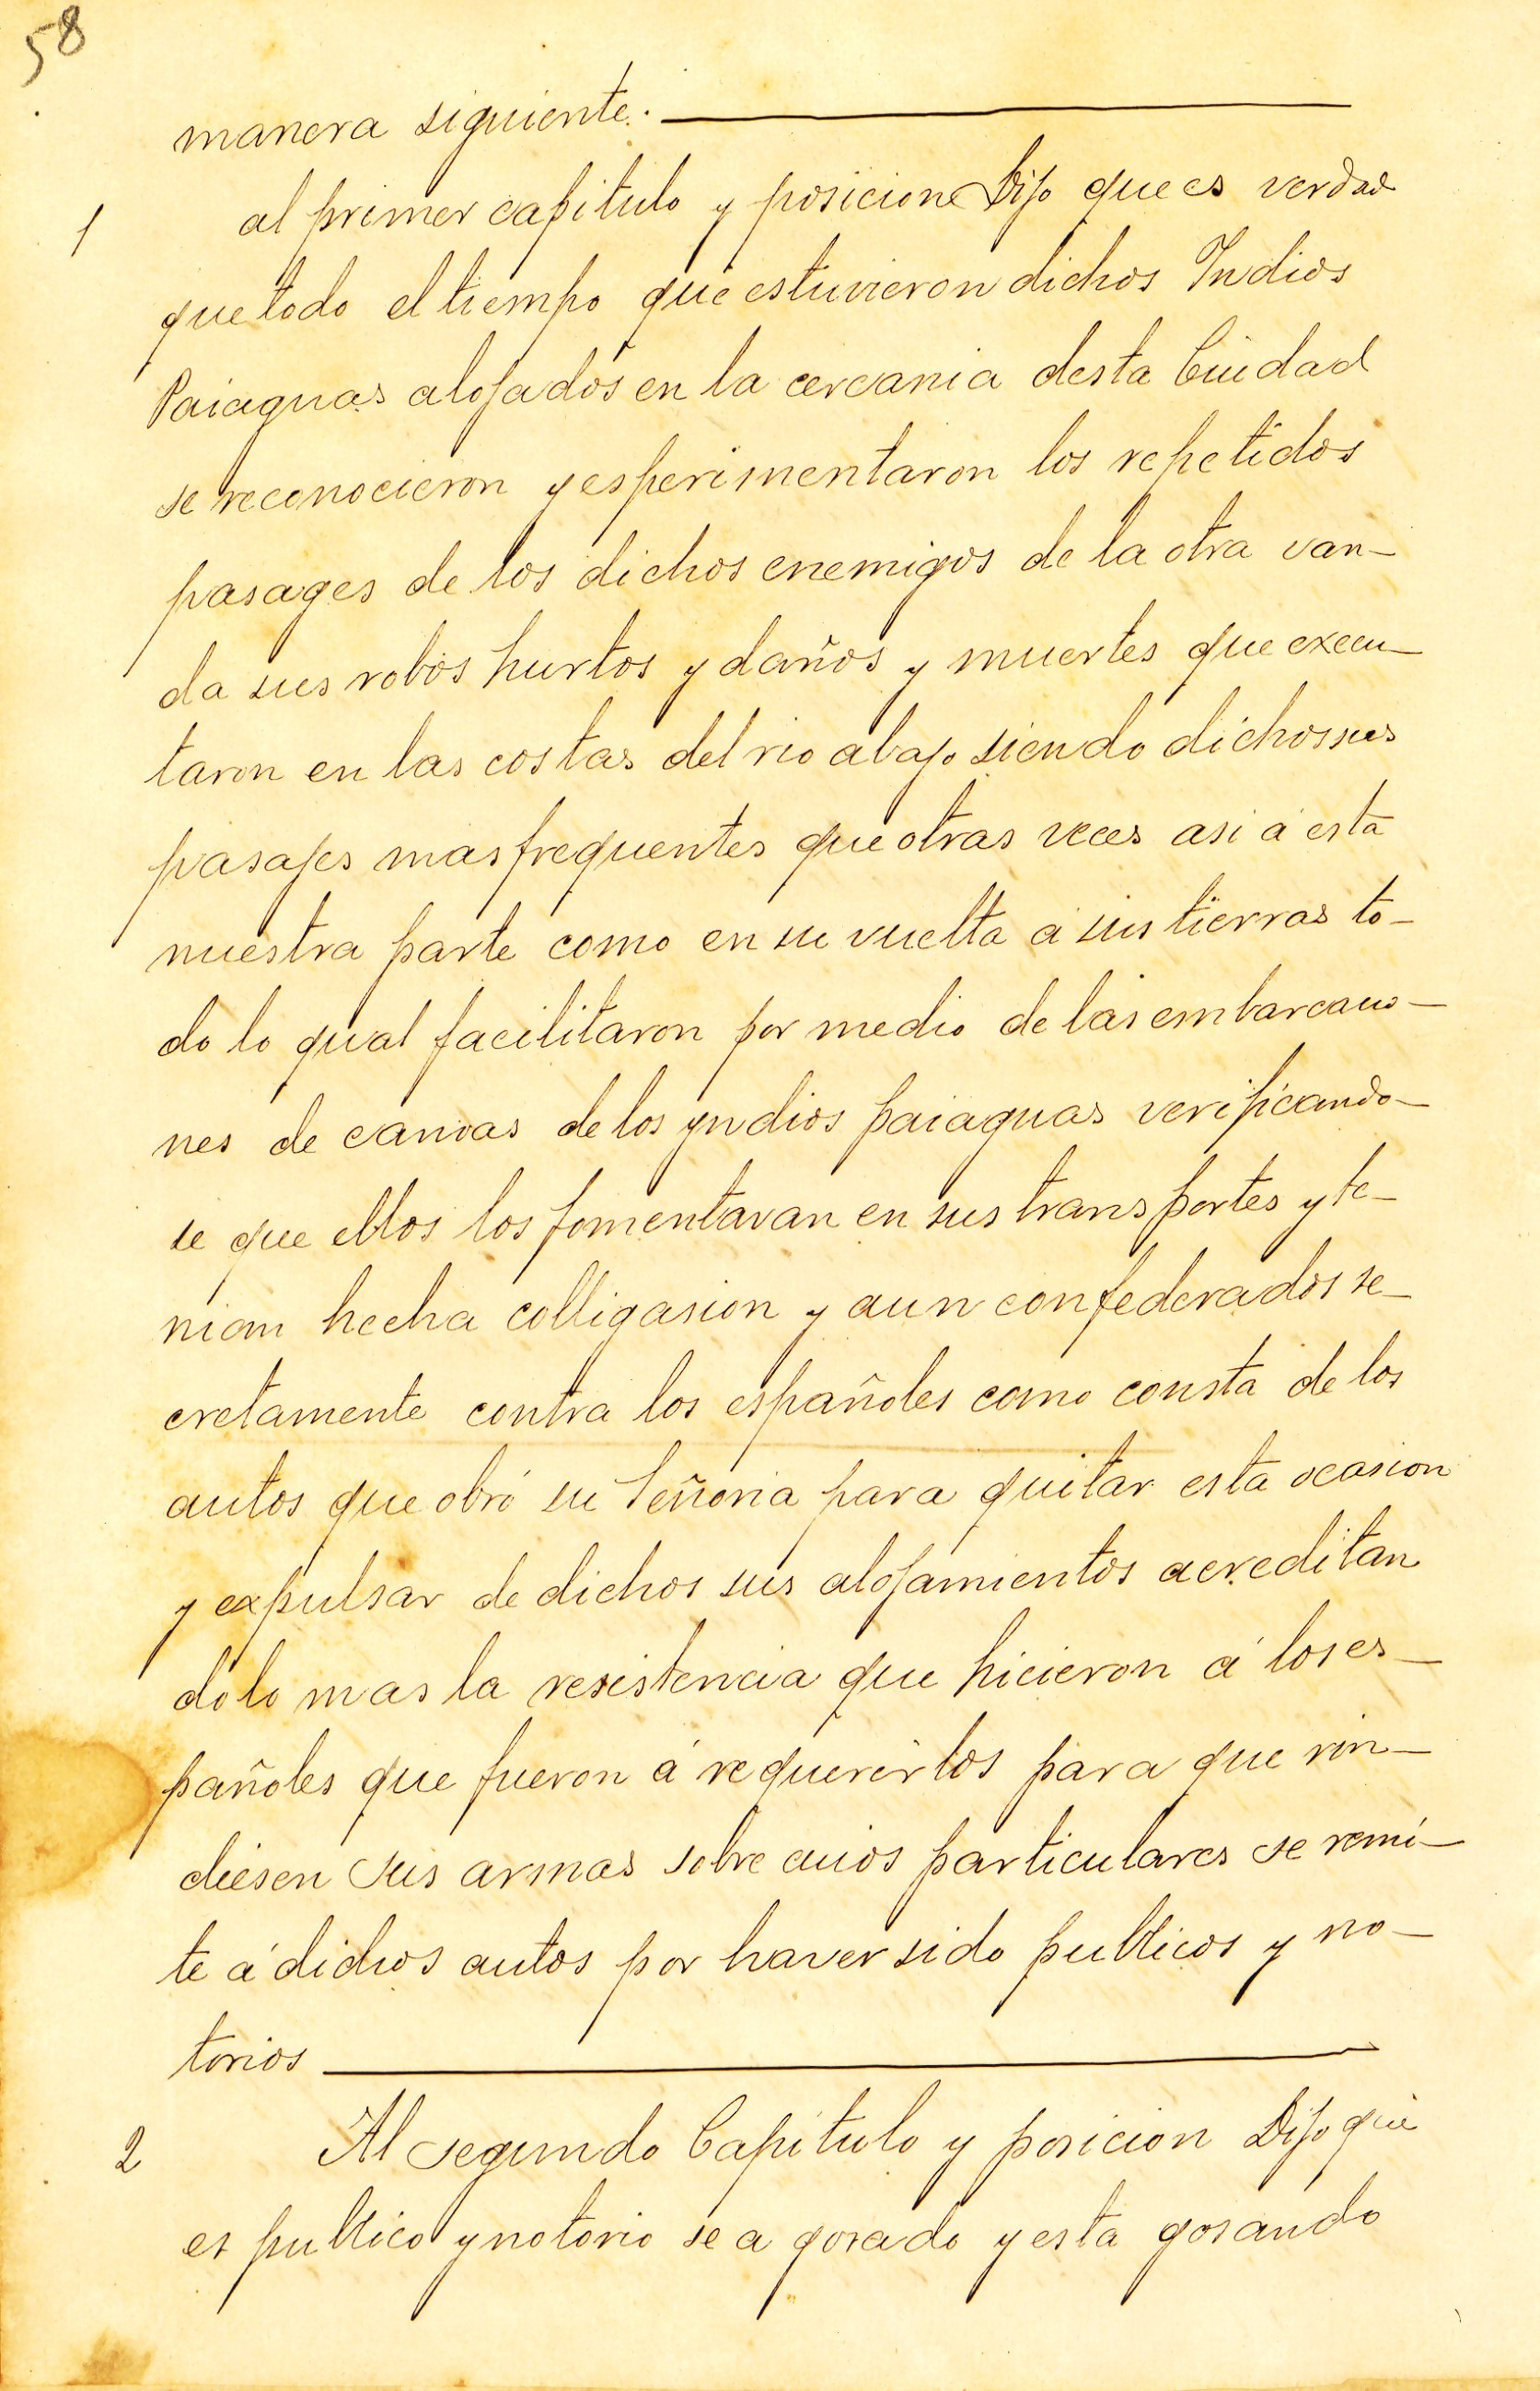 58
manera siguiente.
1 al primer capitulo y posicione Dijo que es verdad
que todo el tiempo que estuvieron dichos Indios
Paiaguas alojados en la cercania desta Ciudad
se reconocieron y esperimentaron los repetidos
pasages de los dichos enemigos de la otra van-
da sus robos hurtos y daños y muertes que execu-
taron en las costas del rio abajo siendo dichos sus
pasajes mas frequentes que otras veces asi á esta
nuestra parte como en su vuelta á sus tierras to-
do lo qual facilitaron por medio de las embarcacio-
nes de canoas de los yndios paiaguas verificando-
se que ellos los fomentavan en sus transportes y te-
nian hecha colligasion y aun confederados se-
cretamente contra los españoles como consta de los
autos que obró su Señoria para quitar esta ocasion
y expulsar de dichos sus alojamientos acreditan
dolo mas la resistencia que hicieron á los es-
pañoles que fueron á requerirlos para que rin-
diesen sus armas sobre cuios particulares se remi-
te á dichos autos por haver sido publicos y no-
torios
2 Al segundo Capitulo y posicion Dijo que
es publico y notorio se a gosado y esta gosando